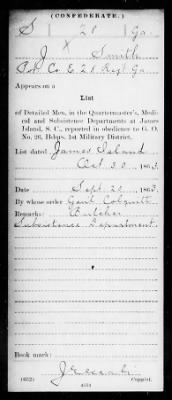 (CONFEDERATE.)
S 28 Ga.
J X Smith
Pvt. Co. E, 28 Regt Ga
Appears on a
List
of Detailed Men, in the Quartermaster's, Medical and Subsistence Departments at James
Island, S. C., reported in obedience to G. O.
No. 26, Hdqrs. 1st Military District.
List dated James Island
Oct 30, 1863.
Date Sept. 20, 1863.
By whose order Genl Colquitt
Remarks: Butcher
Subsistence Department.
Book mark:
(652)
Copyist.